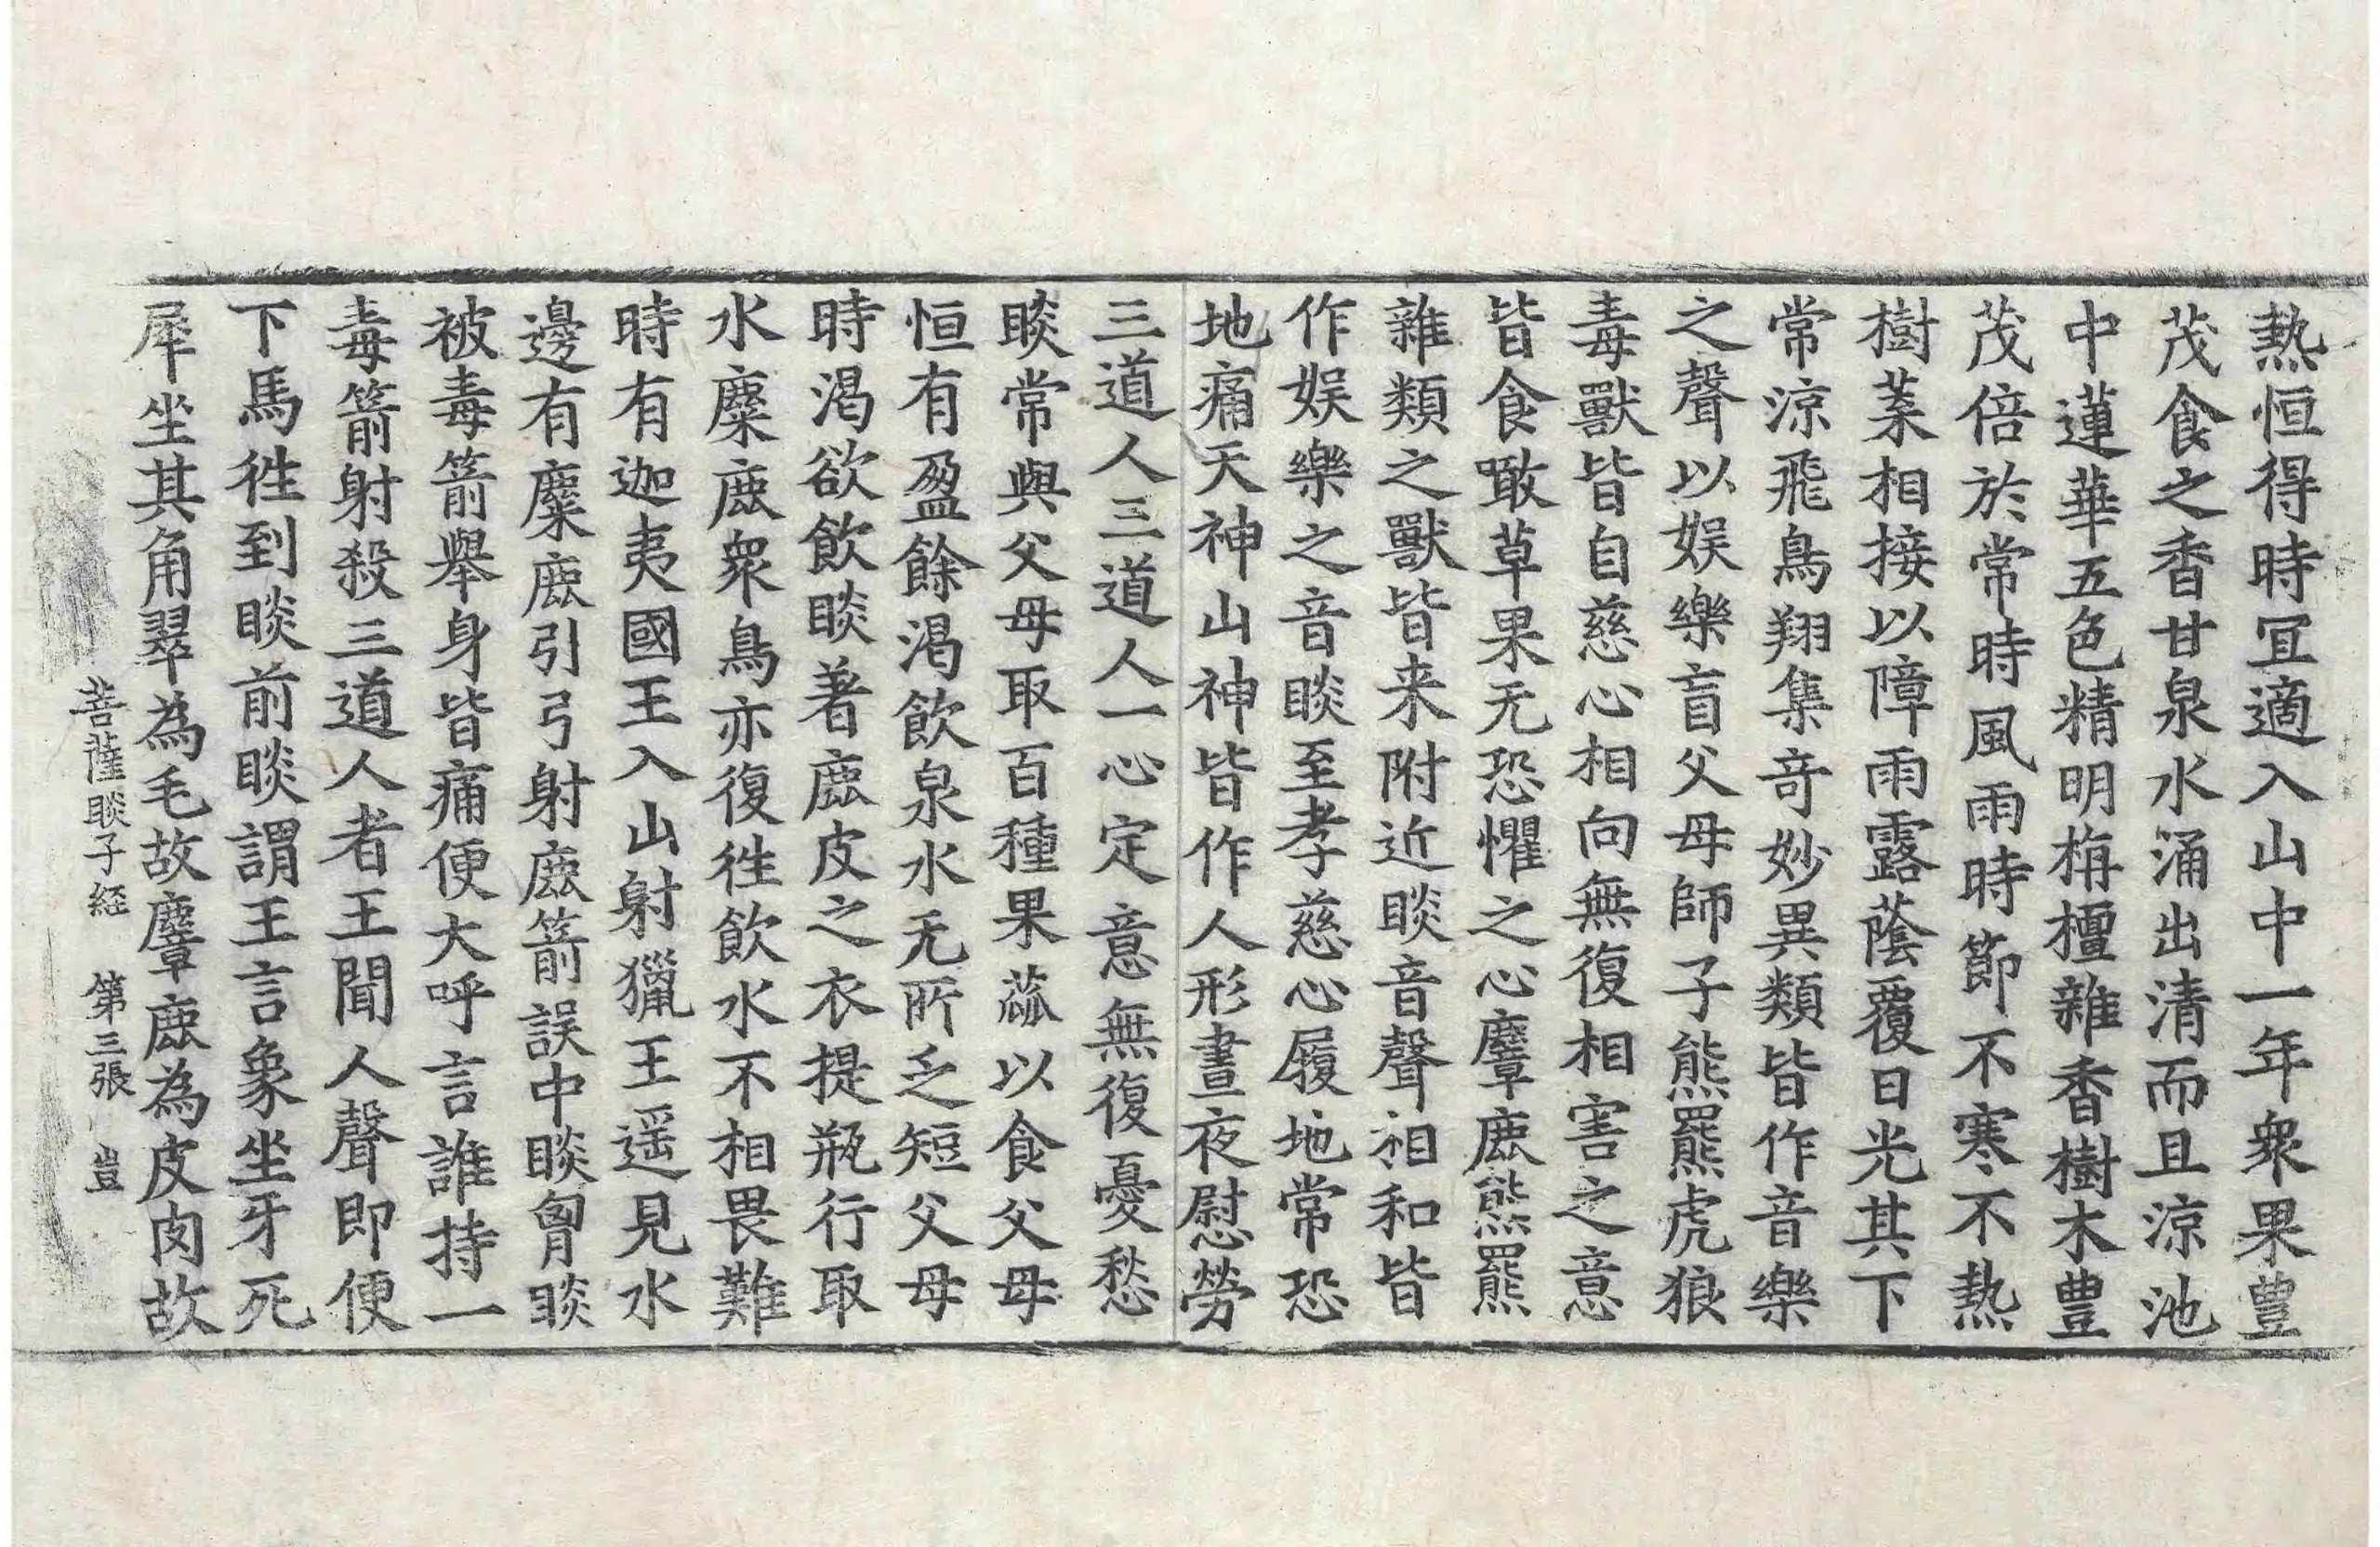 熱恒得時冝適入山中一年衆果豊
茂食之香甘泉水涌出清而且涼池
中蓮華五色精明栴檀雜香樹木豊
茂倍於常時風雨時節不寒不熱
樹葉相接以障雨露蔭覆日光其下
常涼飛鳥翔集竒妙異類皆作音樂
之聲以娱樂盲父母師子熊羆虎狼
毒獸皆自慈心相向無復相害之意
皆食噉草果无恐懼之心麞鹿熊羆
雜類之獸皆来附近睒音聲相和皆
作娱樂之音睒至孝慈心履地常恐
地痛天神山神皆作人形晝夜慰勞
三道人三道人一心定意無復憂愁
睒常與父母取百種果蓏以食父母
恒有盈餘渴飲泉水无所乏短父母
時渴欲飲睒著鹿皮之衣提瓶行取
水麋鹿衆鳥亦復徃飲水不相畏難
時有迦夷國王入山射獵王遥見水
邊有麋鹿引弓射鹿箭誤中睒胷睒
被毒箭舉身皆痛便大呼言誰持一
毒箭射殺三道人者王聞人聲即便
下馬徃到睒前睒謂王言象坐牙死
犀坐其角翠為毛故麞鹿為皮肉故
菩薩睒子経 第三張 豈